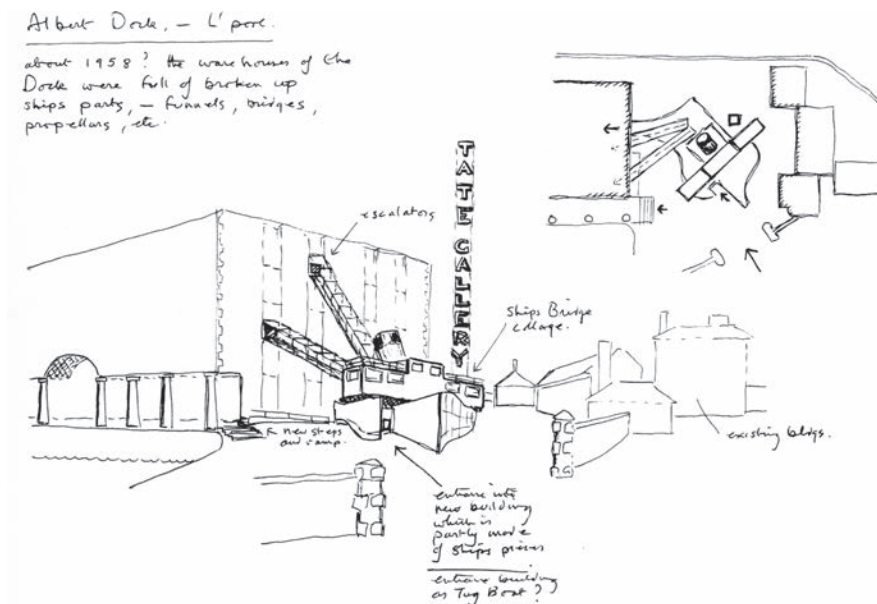 Albert Dock, – L'pool.
about 1958? the warehouses of the
Dock were full of broken up
ships parts, – funnels, bridges,
propellars, etc.
escalators
TATE GALLERY
Ships Bridge
collage.
new steps
and ramp.
existing bldgs.
entrance into
new building
which is
partly made
of ships pieces
entrance building
as Tug Boat?